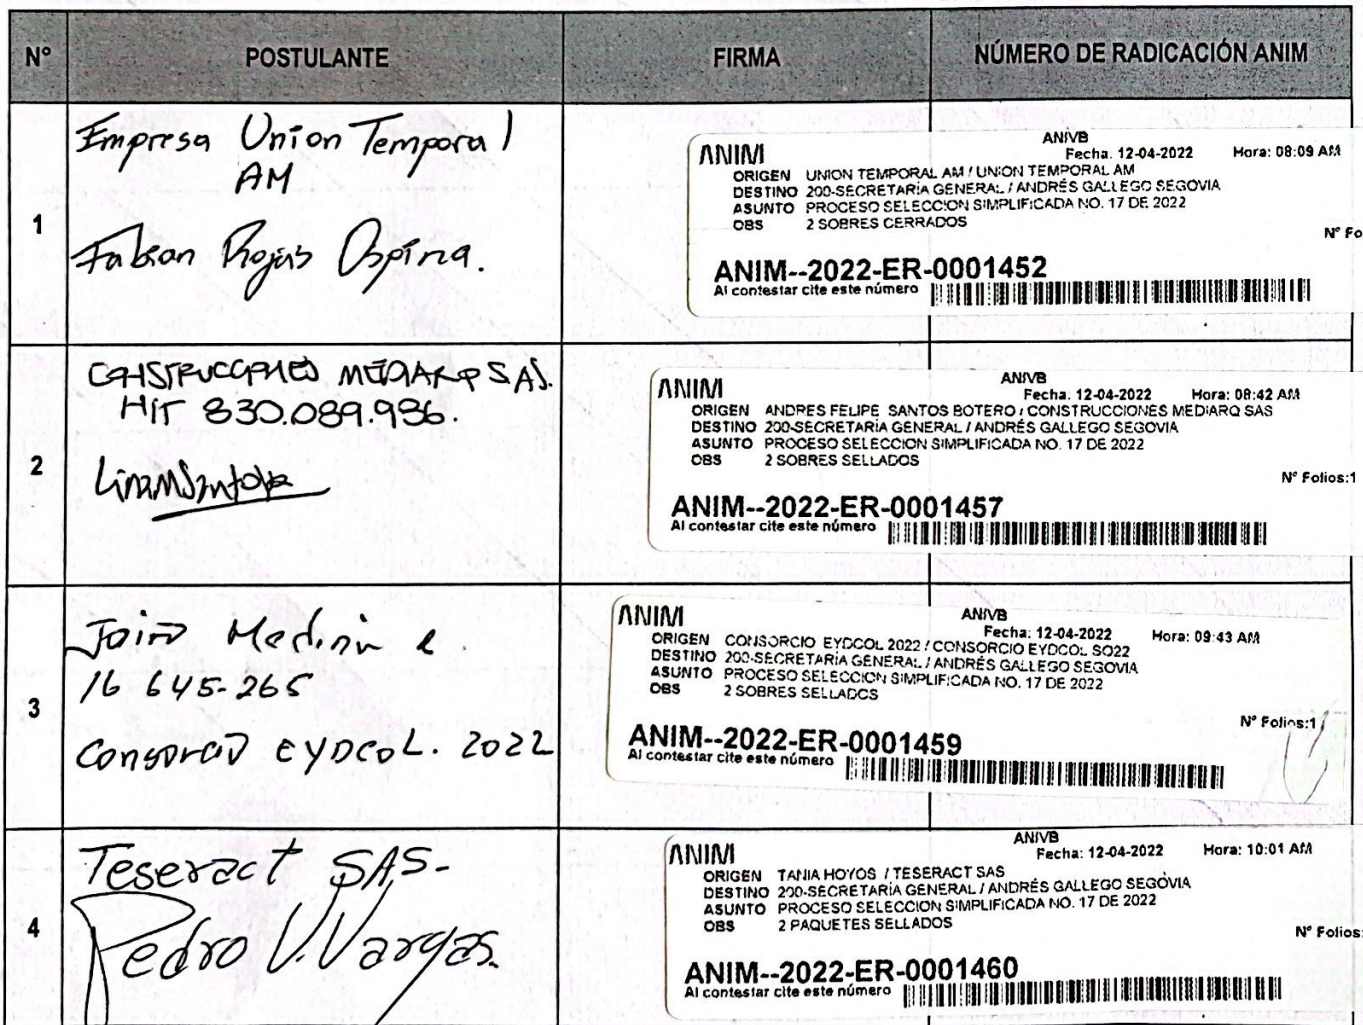 N° POSTULANTE FIRMA NÚMERO DE RADICACIÓN ANIM
1
Empresa Union Temporal
AM
Fabian Rojas Ospina.
ANIM
ANIVB
Fecha: 12-04-2022 Hora: 08:09 AM
ORIGEN UNION TEMPORAL AM / UNION TEMPORAL AM
DESTINO 200-SECRETARÍA GENERAL / ANDRÉS GALLEGO SEGOVIA
ASUNTO PROCESO SELECCION SIMPLIFICADA NO. 17 DE 2022
OBS 2 SOBRES CERRADOS
N° Fo
ANIM--2022-ER-0001452
Al contestar cite este número
2
CONSTRUCCIONES MEDIARQ SAS.
NIT 830.089.936.
ANIM
ANIVB
Fecha: 12-04-2022 Hora: 08:42 AM
ORIGEN ANDRES FELIPE SANTOS BOTERO / CONSTRUCCIONES MEDIARQ SAS
DESTINO 200-SECRETARÍA GENERAL / ANDRÉS GALLEGO SEGOVIA
ASUNTO PROCESO SELECCION SIMPLIFICADA NO. 17 DE 2022
OBS 2 SOBRES SELLADOS
N° Folios:1
ANIM--2022-ER-0001457
Al contestar cite este número
3
Jairo Medina
16 645-265
Consorcio EYDCOL. 2022
ANIM
ANIVB
Fecha: 12-04-2022 Hora: 09:43 AM
ORIGEN CONSORCIO EYDCOL 2022 / CONSORCIO EYDCOL SO22
DESTINO 200-SECRETARÍA GENERAL / ANDRÉS GALLEGO SEGOVIA
ASUNTO PROCESO SELECCION SIMPLIFICADA NO. 17 DE 2022
OBS 2 SOBRES SELLADOS
N° Folios:1
ANIM--2022-ER-0001459
Al contestar cite este número
4
Teseract SAS-
Pedro V. Vargas.
ANIM
ANIVB
Fecha: 12-04-2022 Hora: 10:01 AM
ORIGEN TANIA HOYOS / TESERACT SAS
DESTINO 200-SECRETARÍA GENERAL / ANDRÉS GALLEGO SEGOVIA
ASUNTO PROCESO SELECCION SIMPLIFICADA NO. 17 DE 2022
OBS 2 PAQUETES SELLADOS
N° Folios:
ANIM--2022-ER-0001460
Al contestar cite este número